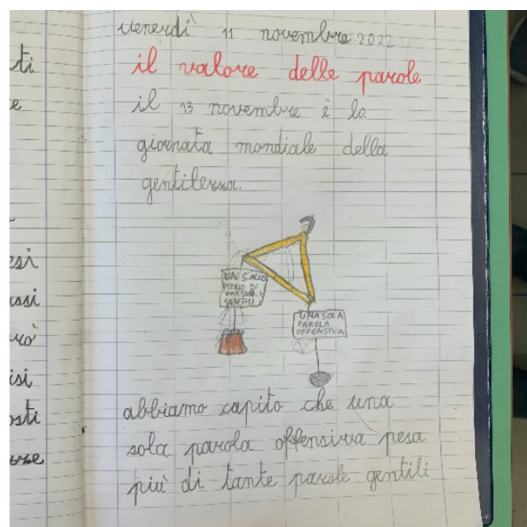 venerdì 11 novembre 2022
il valore delle parole
il 13 novembre è la
giornata mondiale della
gentilezza.
UN SACCO
PIENO DI
PAROLE
GENTILI
UNA SOLA
PAROLA
OFFENSIVA
abbiamo capito che una
sola parola offensiva pesa
più di tante parole gentili